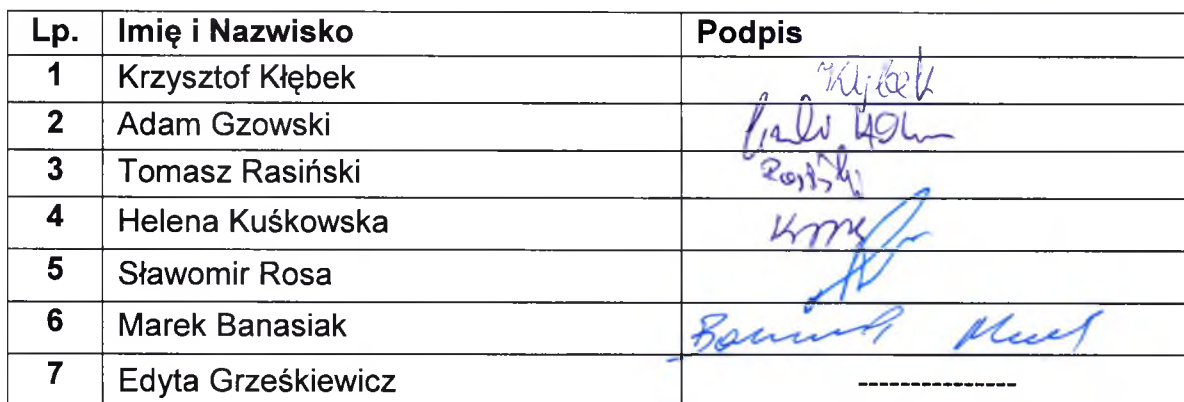 Lp. Imię i Nazwisko Podpis
1 Krzysztof Kłębek Kłębek
2 Adam Gzowski
3 Tomasz Rasiński
4 Helena Kuśkowska
5 Sławomir Rosa
6 Marek Banasiak
7 Edyta Grześkiewicz ---------------